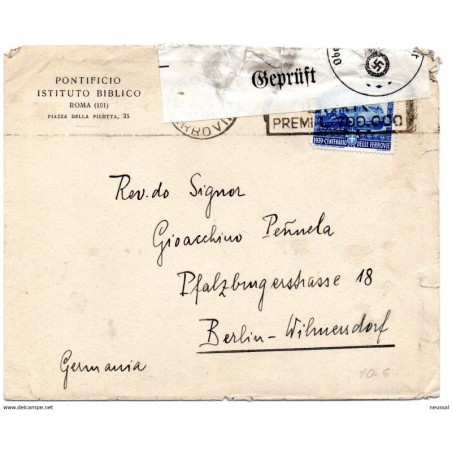 PONTIFICIO
ISTITUTO BIBLICO
ROMA (101)
PIAZZA DELLA PILOTTA, 35
Geprüft
PREMI 700.000
1939-CENTENARIO DELLE FERROVIE
Rev.do Signor
Gioacchino Peñuela
Pfalzburgerstrasse 18
Berlin-Wilmersdorf
Germania
10 €
www.delcampe.net
neussal